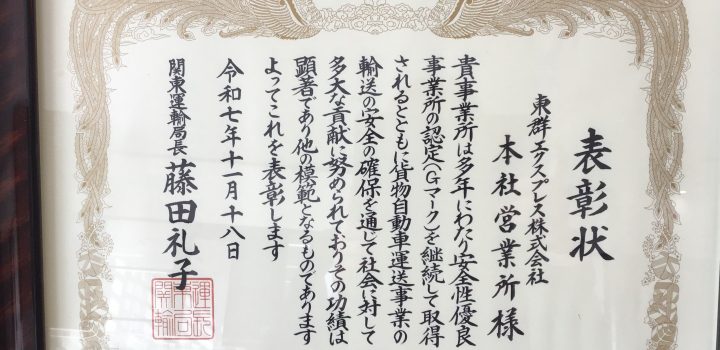 表彰状
東群エクスプレス株式会社
本社営業所様
貴事業所は多年にわたり安全性優良
事業所の認定(Gマーク)を継続して取得
されるとともに貨物自動車運送事業の
輸送の安全の確保を通じて社会に対して
多大な貢献に努められておりその功績は
顕著であり他の模範となるものであります
よってこれを表彰します
令和七年十一月十八日
関東運輸局長 藤田礼子